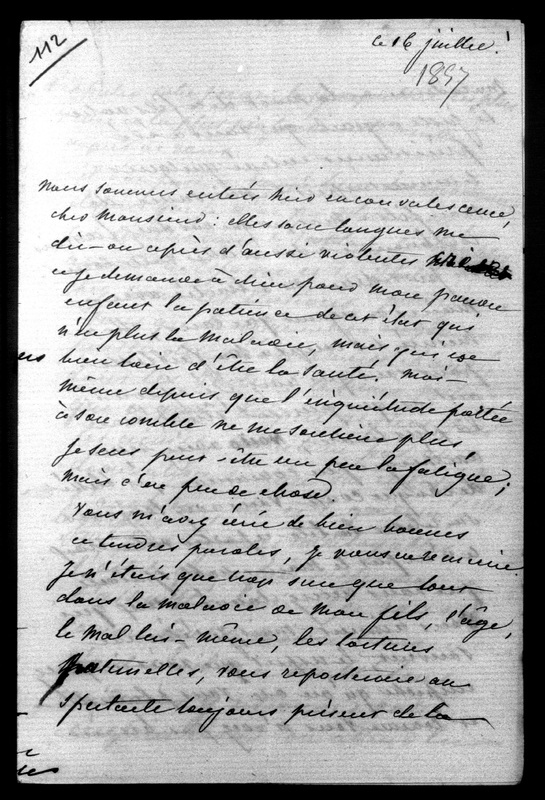 112
le 16 juillet
1857
Nous sommes entrés hier en convalescence,
cher Monsieur : elles sont longues me
dit-on après d'aussi violentes
et je demande à Dieu pour mon pauvre
enfant la patience de cet état qui
n'est plus la maladie, mais qui est
bien loin d'être la santé. moi-
même depuis que l'inquiétude portée
à son comble ne me soutient plus
je sens peut-être un peu la fatigue ;
mais c'est peu de chose.
Vous m'avez écrit de bien bonnes
et tendres paroles, je vous en remercie.
Je n'étais que trop sure que tout
dans la maladie de mon fils, l'âge,
le mal lui-même, les tortures
paternelles, vous reporterait au
spectacle toujours présent de la